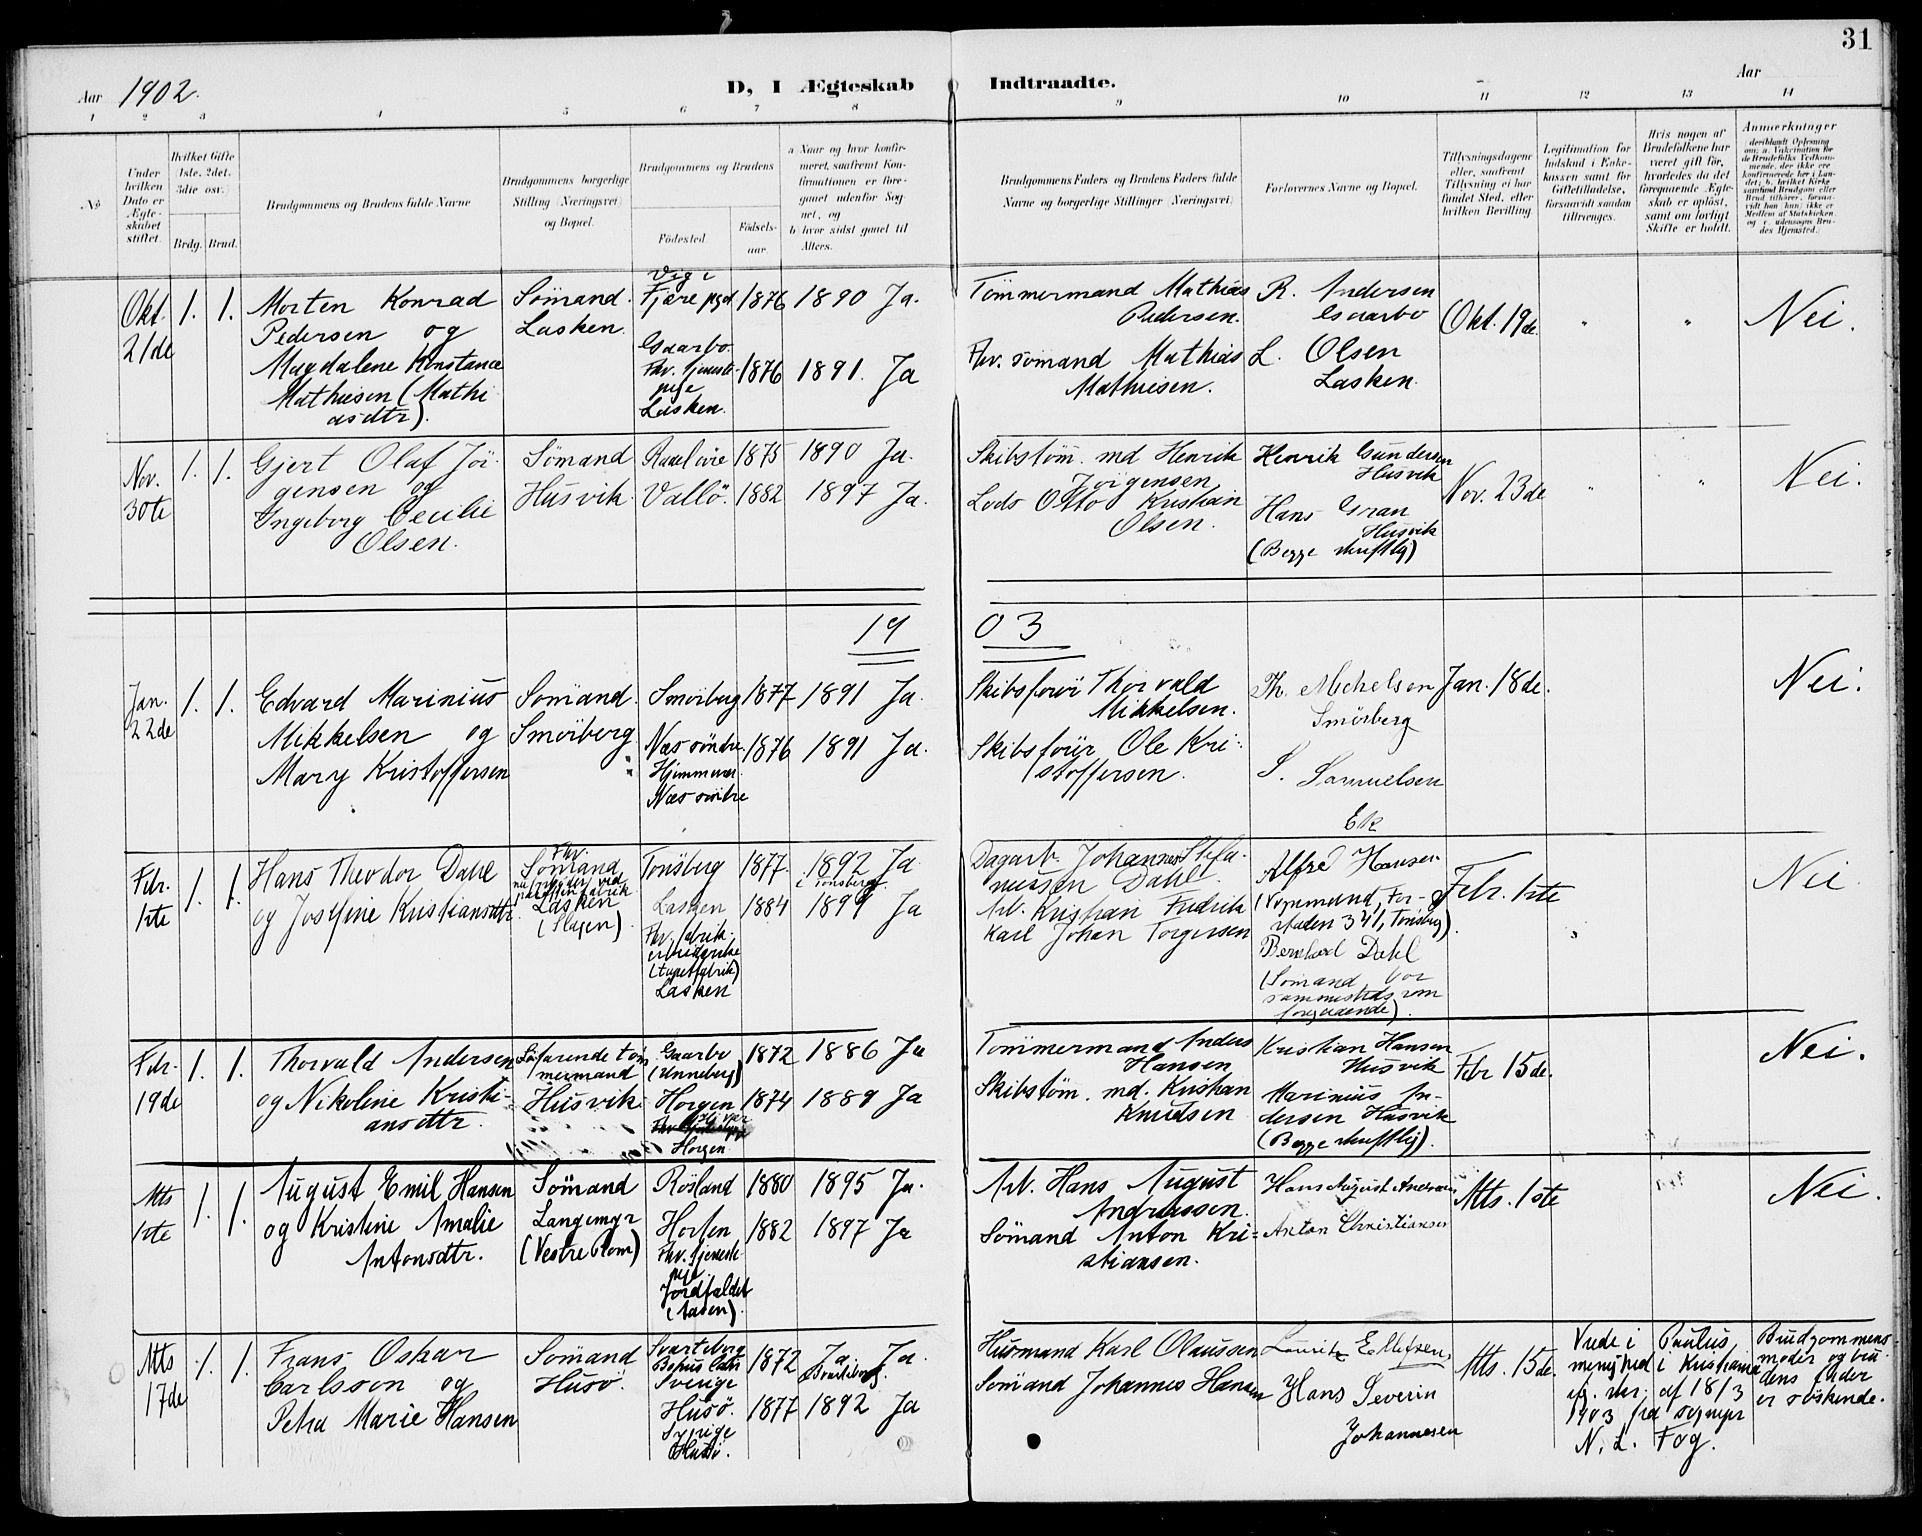 31
Aar 1902.
D, I Ægteskab Indtraadte.
Aar
1 2 3 4 5 6 7 8 9 10 11 12 13 14
No
Under hvilken Dato er Ægteskabet stiftet.
Hvilket Gifte 1ste, 2det, 3die osv.)
Brdg. Brud.
Brudgommens og Brudens fulde Navne
Brudgommens borgerlige Stilling (Næringsvei) og Bopæl.
Brudgommens og Brudens
Fødested. Fødsels-aar.
a Naar og hvor konfirmeret, saafremt Konfirmationen er foregaaet udenfor Sognet, og
b hvor sidst gaaet til Alters.
Brudgommens Faders og Brudens Faders fulde Navne og borgerlige Stillinger (Næringsvei)
Forlovernes Navne og Bopæl.
Tillysningsdagene eller, saafremt Tillysning ei har fundet Sted, efter hvilken Bevilling.
Legitimation for Indskud i Enkekassen samt for Giftetilladelse, forsaavidt saadan tiltrænges.
Hvis nogen af Brudefolkene har været gift før, hvorledes da det foregaaende Ægteskab er opløst, samt om lovligt Skifte er holdt.
Anmerkninger
Okt. 21de
1. 1.
Morten Konrad
Pedersen og
Magdalene Konstance
Mathiesen (Mathi
asdtr).
Sömand.
Lasken.
Vig i
Fjære pgd. 1876 1890 Ja.
Gaarbo.
Fhv. tjeneste-
pige
Lasken. 1876 1891. Ja
Tömmermand Mathias
Pedersen.
Fhv. sömand Mathias
Mathiesen.
R. Andersen
Gaarbo
L. Olsen
Lasken.
Okt. 19de.
" "
Nei.
Nov. 30te
1. 1.
Gjert Olaf Jör-
gensen og
Ingeborg Cecilie
Olsen.
Sömand
Husvik.
1875 1890 Ja.
Vallö. 1882 1897 Ja.
Skibstöm. md Henrik
Jörgensen
Lods Otto Kristian
Olsen.
Henrik Gundersen
Husvik
Hans Gran
Husvik
(Begge skriftlig)
Nov. 23de
" "
Nei.
1903
Jan. 22de
1. 1.
Edvard Marinius
Mikkelsen og
Mary Kristoffersen
Sömand.
Smörberg
Smörberg 1877 1891 Ja
Næs söndre. 1876 1891 Ja.
Hjemmevær.
Næs söndre
Skibsförer Thorvald
Mikkelsen.
Skibsförer Ole Kri-
stoffersen.
Th. Mickelsen
Smörberg
S. Samuelsen
Ek
Jan. 18de.
Nei.
Febr. 1ste
1. 1.
Hans Theodor Dahl
og Josefine Kristiansdtr.
Fhv.
Sömand
Lasken
(Slagen)
Tönsberg 1877. 1892 Ja
i Tönsberg.
Lasken 1884 1899 Ja
Fhv. fabrik-
arbeiderske
(tapetfabrik)
Lasken
Dagarb. Johannes Stefa-
nussen Dahl.
Arb. Kristian Fredrik
Karl Johan Torgersen
Alfred Hansen
(Vognmand, For-
staden 341, Tönsberg).
Bernhard Dahl
(Sömand, bor
sammesteds som
foregaaende).
Febr. 1ste
Nei
Febr. 19de
1. 1.
Thorvald Andersen
og Nikoline Kristi-
ansdtr.
Söfarende töm
mermand
Husvik
Gaarbo
(Unneberg) 1872 1886 Ja
Horgen 1874 1889 Ja
Horgen
Tömmermand Anders
Hansen
Skibstöm. md. Kristian
Knudsen
Kristian Hansen
Husvik
Marinius An-
dersen Husvik
(Begge skriftlig).
Febr 15de.
Nei.
Mts 1ste
1. 1.
August Emil Hansen
og Kristine Amalie
Antonsdtr.
Sömand
Langemyr
(Vestre Rom)
Rösland 1880 1895 Ja.
Horten 1882 1897 Ja
Fhv. tjeneste
pige
Jordfaldet
(Aasen).
Arb. Hans August
Andreassen.
Sömand Anton Kri-
stiansen.
Hans August Andreasen
Anton Christiansen
Mts. 1ste
Nei.
Mts 17de
1. 1.
Frans Oskar
Carlsson og
Petra Marie Hansen
Sömand
Husö.
Svarteborg
Bohus län
Sverige 1872 Ja Ja.
(Svarteborg).
Husö. 1877 1892 Ja
Husö.
Husmand Karl Olaussen
Sömand Johannes Hansen
Lauritz Ellefsen
Hans Severin
Johannesen
Mts. 15de.
Viede i Paulus
menighed i Kristiania
af 18/3
1903 fra sognepr
N. L. Fog.
Brudgommens
moder og bru-
dens fader
er söskende.